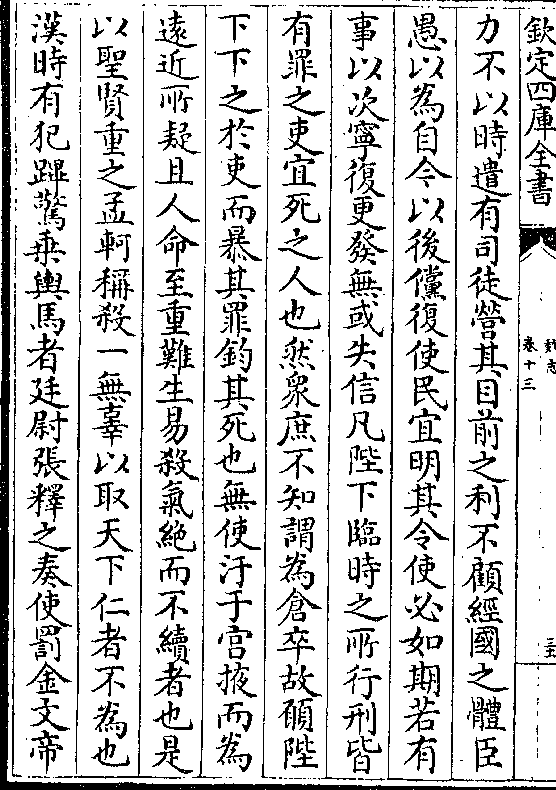 欽定四庫全書
魏志
卷十三
力不以時遣有司徒營其目前之利不顧經國之體臣
愚以為自今以後儻復使民宜明其令使必如期若有
事以次寧復更發無或失信凡陛下臨時之所行刑皆
有罪之吏宜死之人也然衆庶不知謂為倉卒故願陛
下下之於吏而暴其罪鈞其死也無使汙于宫掖而為
逺近所疑且人命至重難生易殺氣絶而不續者也是
以聖賢重之孟軻稱殺一無辜以取天下仁者不為也
漢時有犯蹕驚乗輿馬者廷尉張釋之奏使罰金文帝